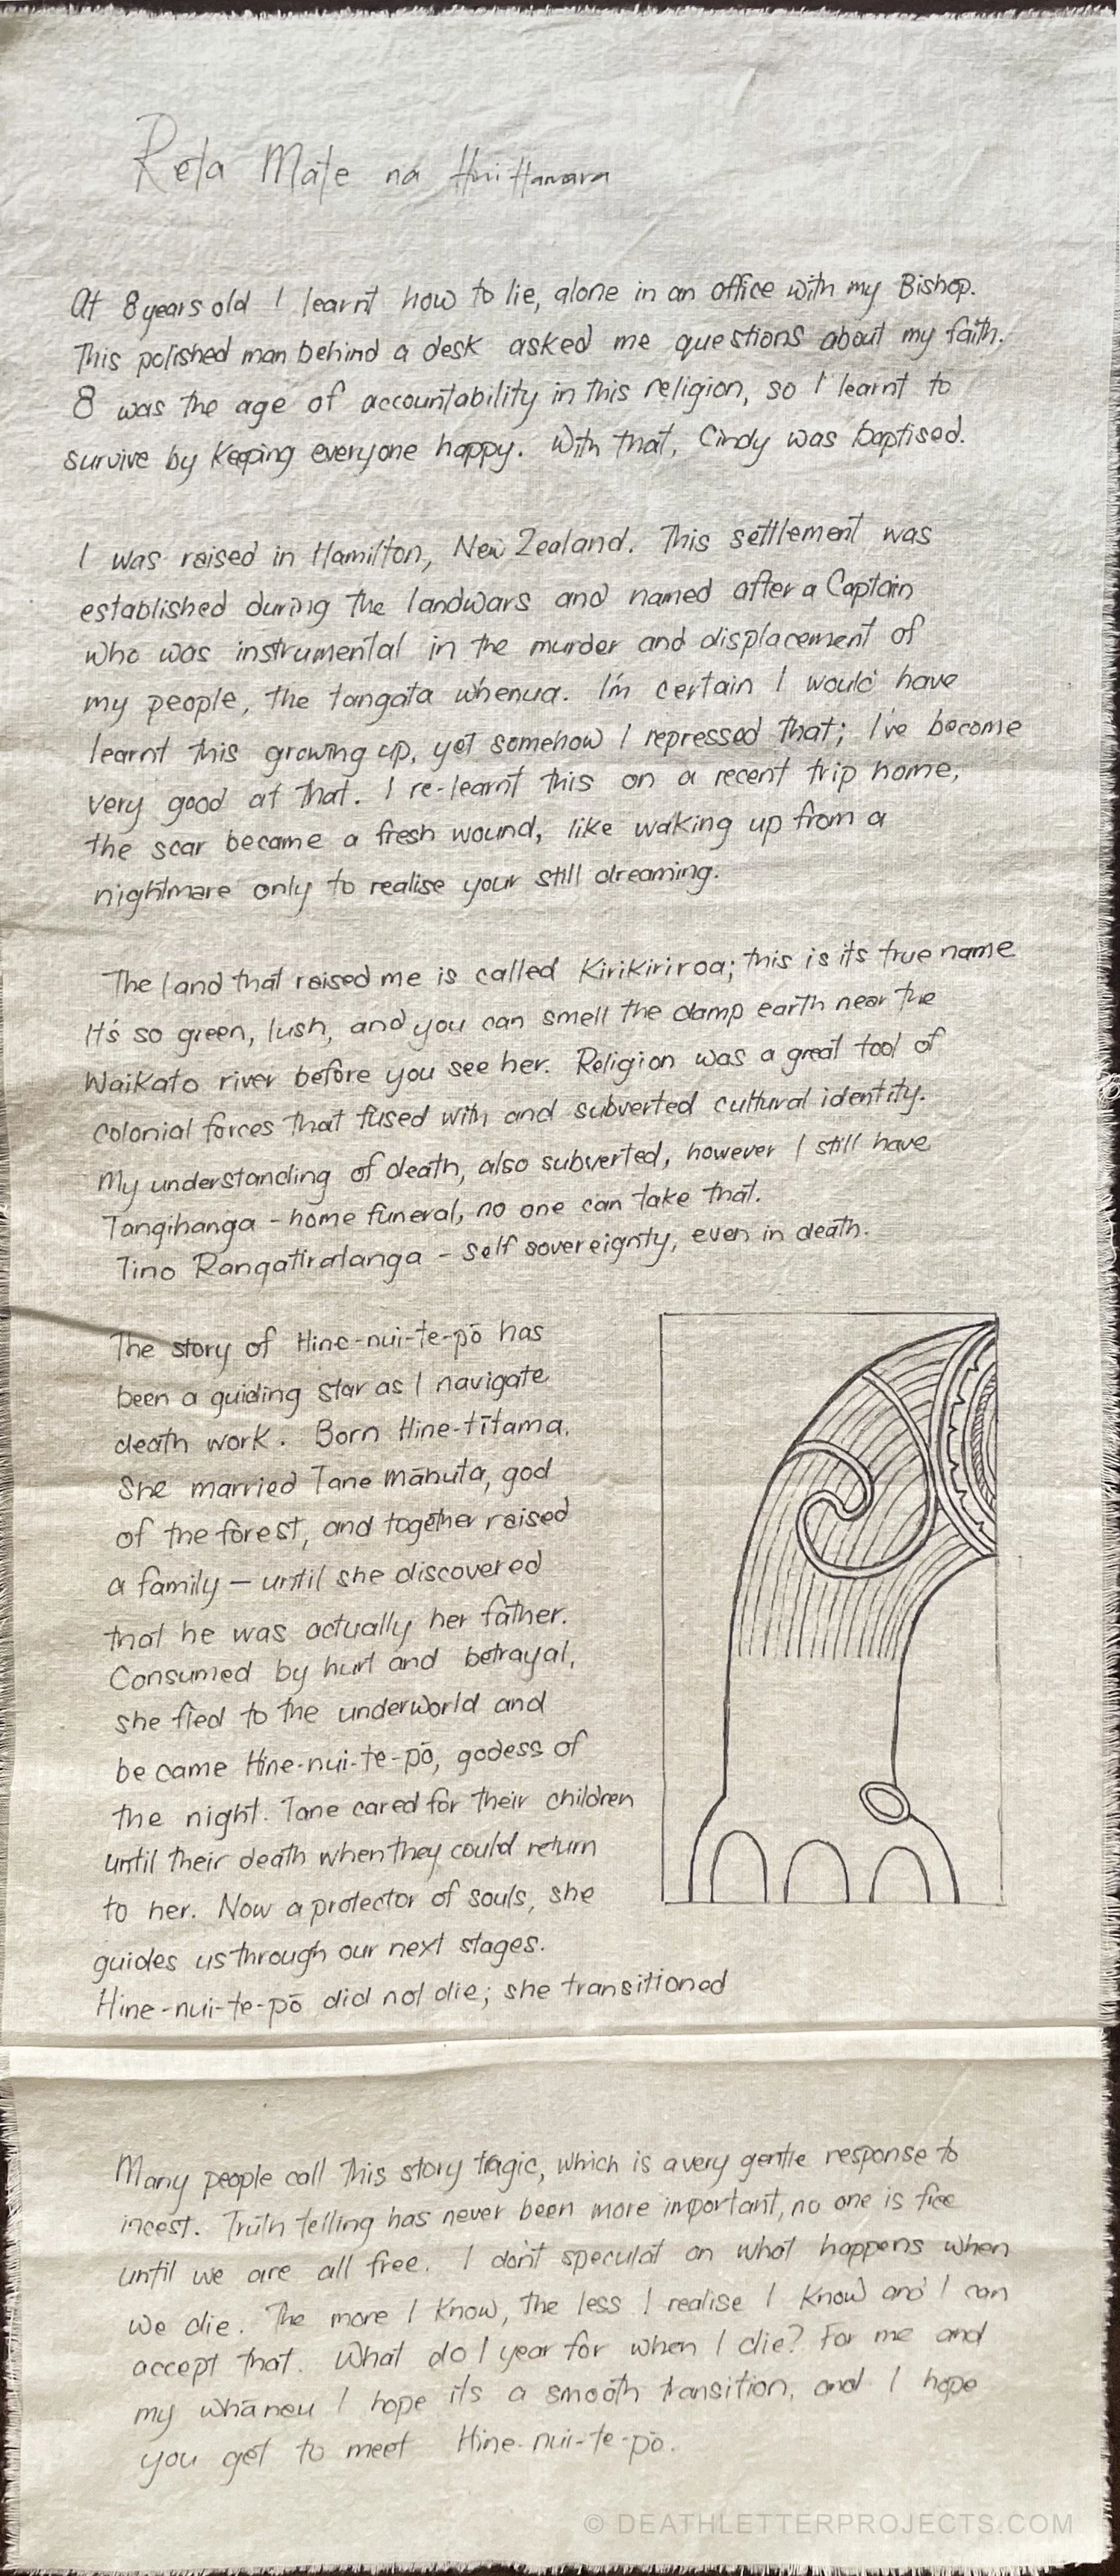 Reta Mate na Hini Hanara
At 8 years old I learnt how to lie, alone in an office with my Bishop.
This polished man behind a desk asked me questions about my faith.
8 was the age of accountability in this religion, so I learnt to
survive by Keeping everyone happy. With that, Cindy was baptised.
I was raised in Hamilton, New Zealand. This settlement was
established during the landwars and named after a Captain
who was instrumental in the murder and displacement of
my people, the tangata whenua. I'm certain I would have
learnt this growing up, yet somehow I repressed that; I've become
very good at that. I re-learnt this on a recent trip home,
the scar became a fresh wound, like waking up from a
nightmare only to realise your still dreaming.
The land that raised me is called Kirikiriroa; this is its true name
It's so green, lush, and you can smell the damp earth near the
Waikato river before you see her. Religion was a great tool of
colonial forces that fused with and subverted cultural identity.
My understanding of death, also subverted, however I still have
Tangihanga - home funeral, no one can take that.
Tino Rangatiratanga - self sovereignty, even in death.
The story of Hine-nui-te-pō has
been a guiding star as I navigate
death work. Born Hine-tītama.
She married Tane māhuta, god
of the forest, and together raised
a family — until she discovered
that he was actually her father.
Consumed by hurt and betrayal,
she fled to the underworld and
became Hine-nui-te-pō, godess of
the night. Tane cared for their children
until their death when they could return
to her. Now a protector of souls, she
guides us through our next stages.
Hine-nui-te-pō did not die; she transitioned
Many people call this story tragic, which is a very gentle response to
incest. Truth telling has never been more important, no one is free
until we are all free. I don't speculat on what happens when
we die. The more I Know, the less I realise I Know and I can
accept that. What do I year for when I die? For me and
my whāneu I hope its a smooth transition, and I hope
you get to meet Hine-nui-te-pō.
© DEATHLETTERPROJECTS.COM